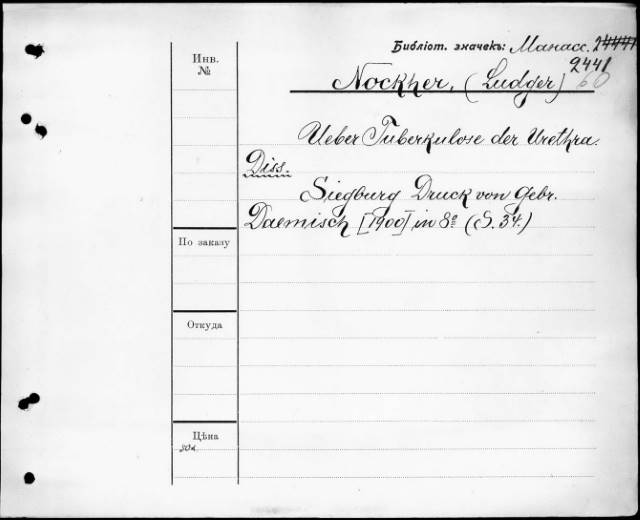 Библіот. значекъ: Манасс. 24441
2441
60
Инв.
№
Nockher, (Ludger)
Ueber Tuberkulose der Urethra.
Diss.
Siegburg Druck von Gebr.
Daemisch [1900] in 8º (S. 34.)
По заказу
Откуда
Цѣна